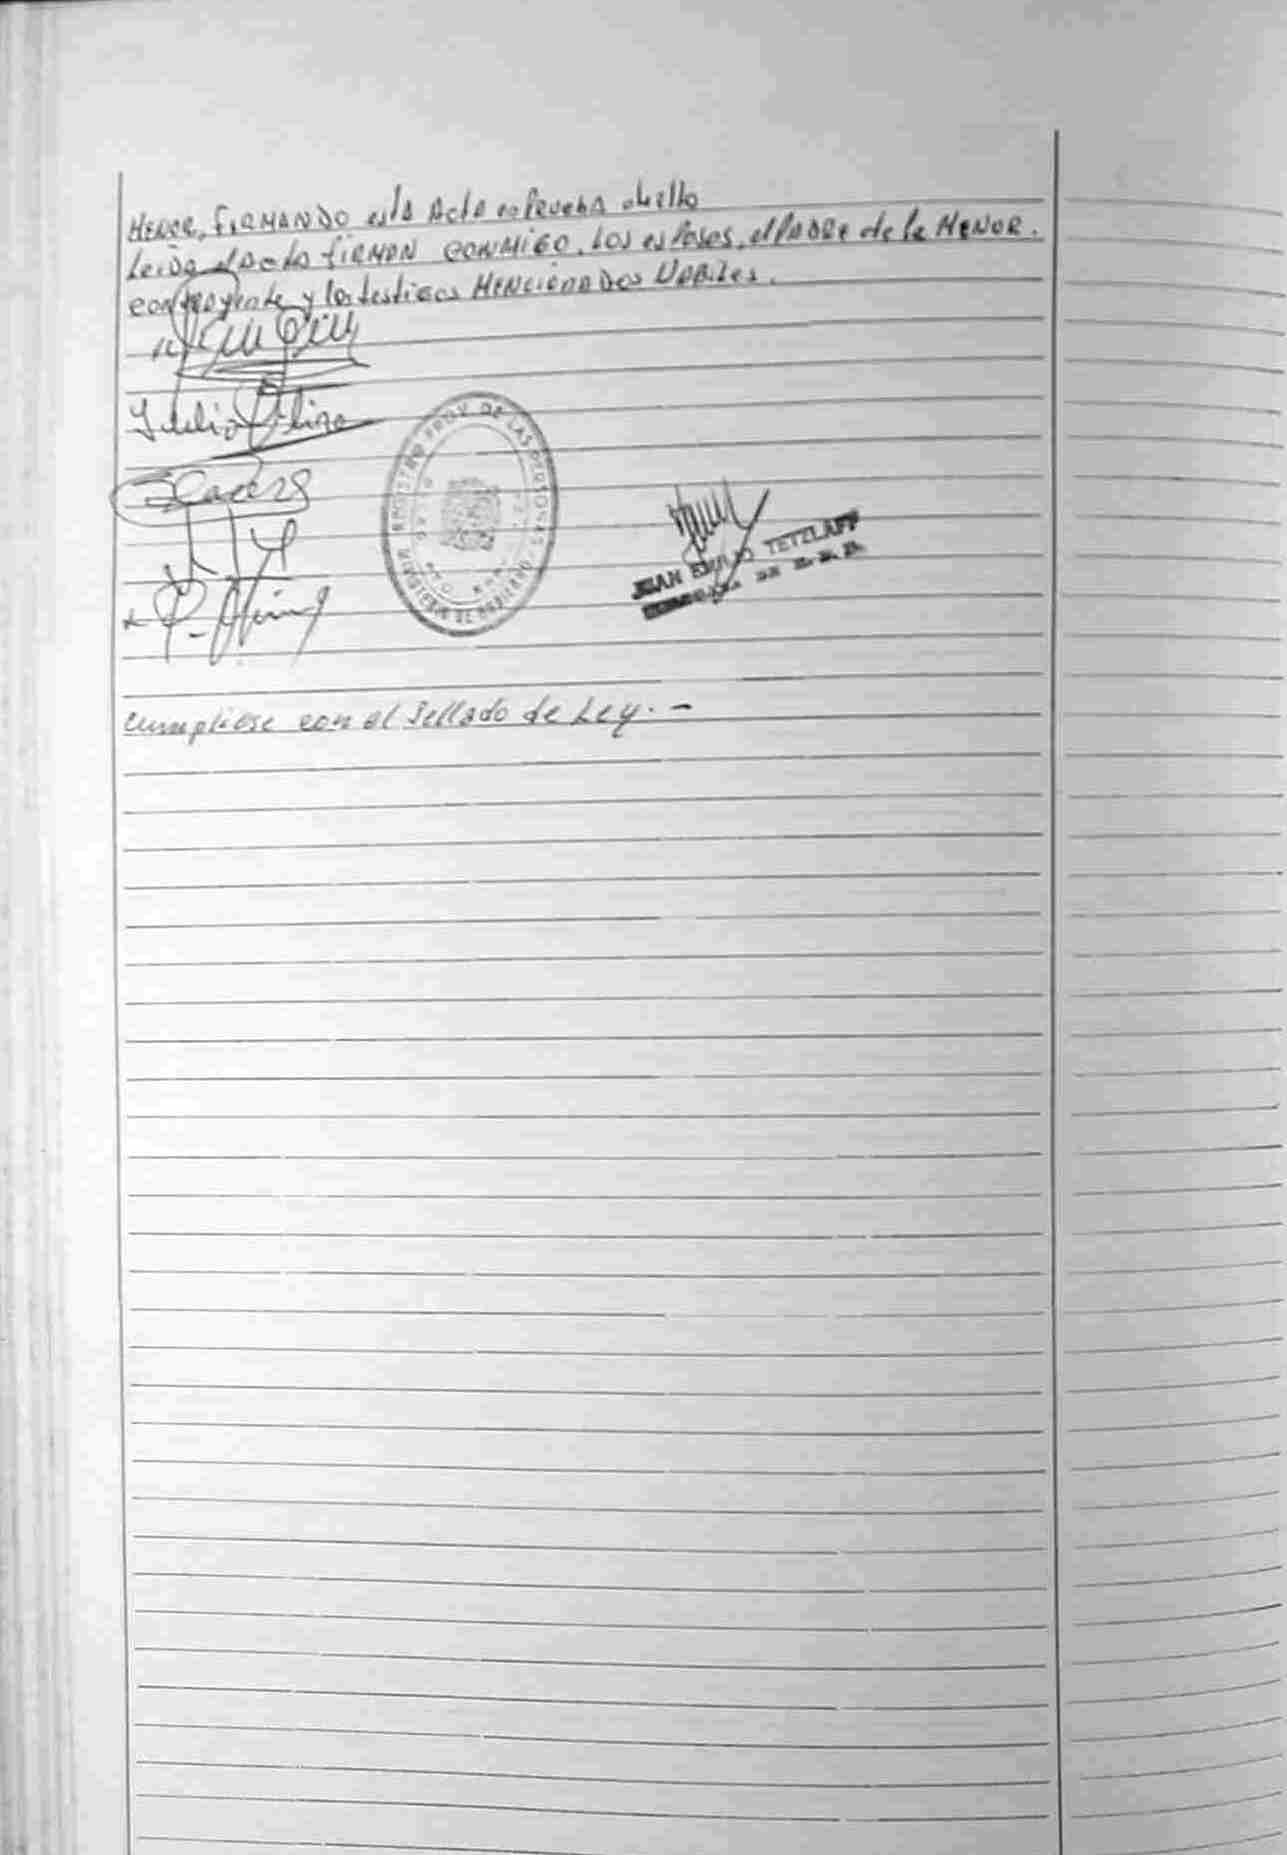 MENOR, FIRMANDO esta Acta en Prueba de ello
Leida el Acta firman conmigo, los esposos, el PADRE de la MENOR.
contrayente y los testigos MENCIONADOS HABILES.
Julio
REGISTRO PROV. DE LAS PERSONAS
MINISTERIO DE GOBIERNO
JUAN EMILIO TETZLAFF
Cumpliose con el Sellado de Ley. -